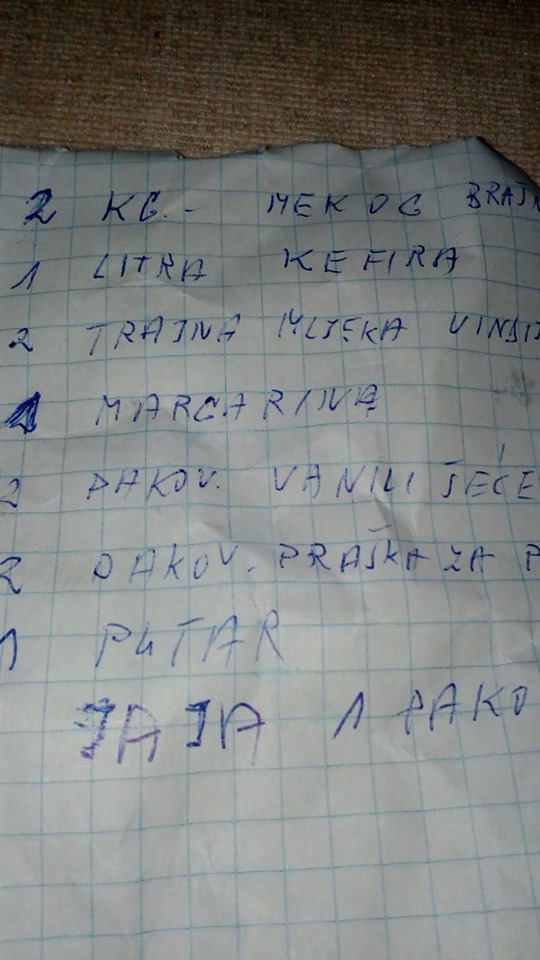 2 KG.- MEKOG BRAŠN
1 LITRA KEFIRA
2 TRAJNA MLJEKA VINDI
1 MARGARINA
2 PAKOV. VANILI ŠEĆE
2 PAKOV. PRAŠKA ZA P
1 PUTAR
JAJA 1 PAKO